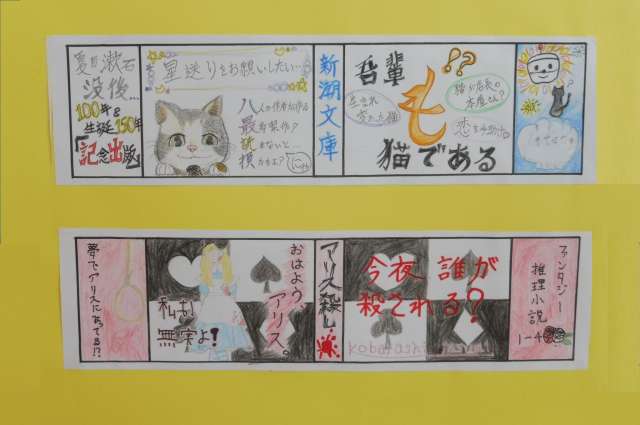 夏目漱石
没後…
100年&
生誕150年
『記念出版』
星送りをお願いしたい…
八人の作者が作る
新潮文庫
吾輩
も
猫である
!?
生まれ
変わった猫
猫が店長の
本屋さん?
夢でアリスにあってる!?
おはよう、
アリス。
私も
無実よ!
アリス殺し
今夜誰が
殺される?
kobayashi
ファンタジー
推理小説
1-4